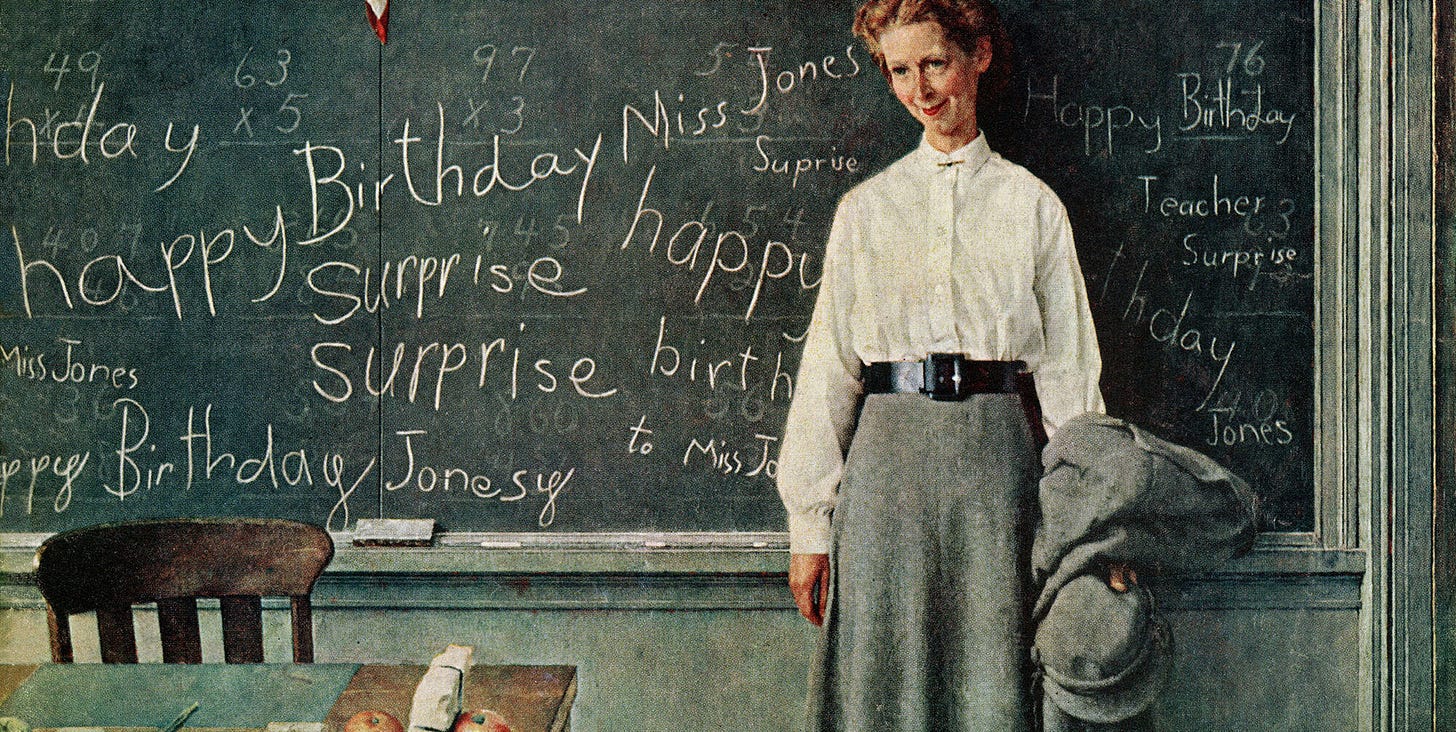 49
63
x 5
97
x 3
76
hday
Birthday
Miss Jones
Suprise
Happy Birthday
Teacher
Surprise
happy
surprise
happy
Miss Jones
surprise
birth
hday
Jones
ppy Birthday Jonesy
to Miss Jo